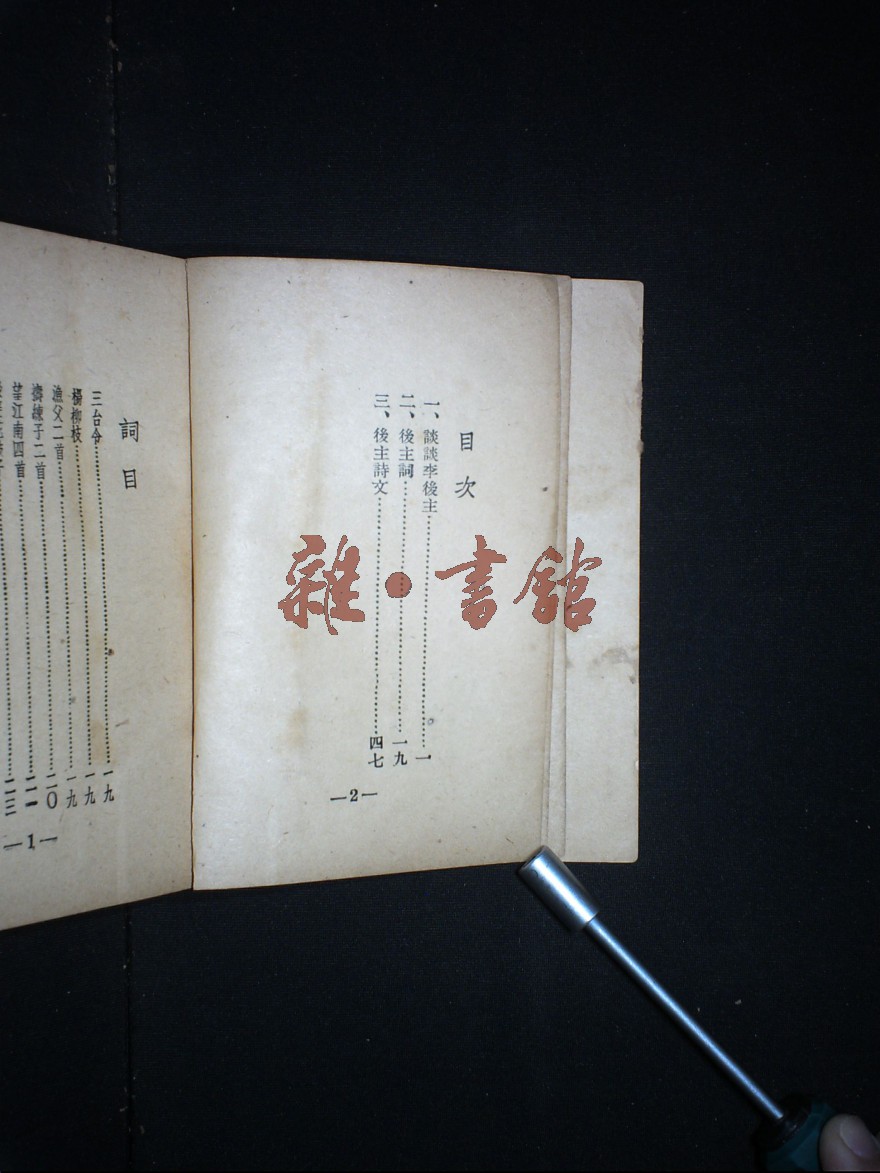 目次
一、談談李後主……一
二、後主詞……一九
三、後主詩文……四七
—2—
詞目
三台令……一九
楊柳枝……一九
漁父二首……一九
擣練子二首……二〇
望江南四首……二一
—1—
雜·書館